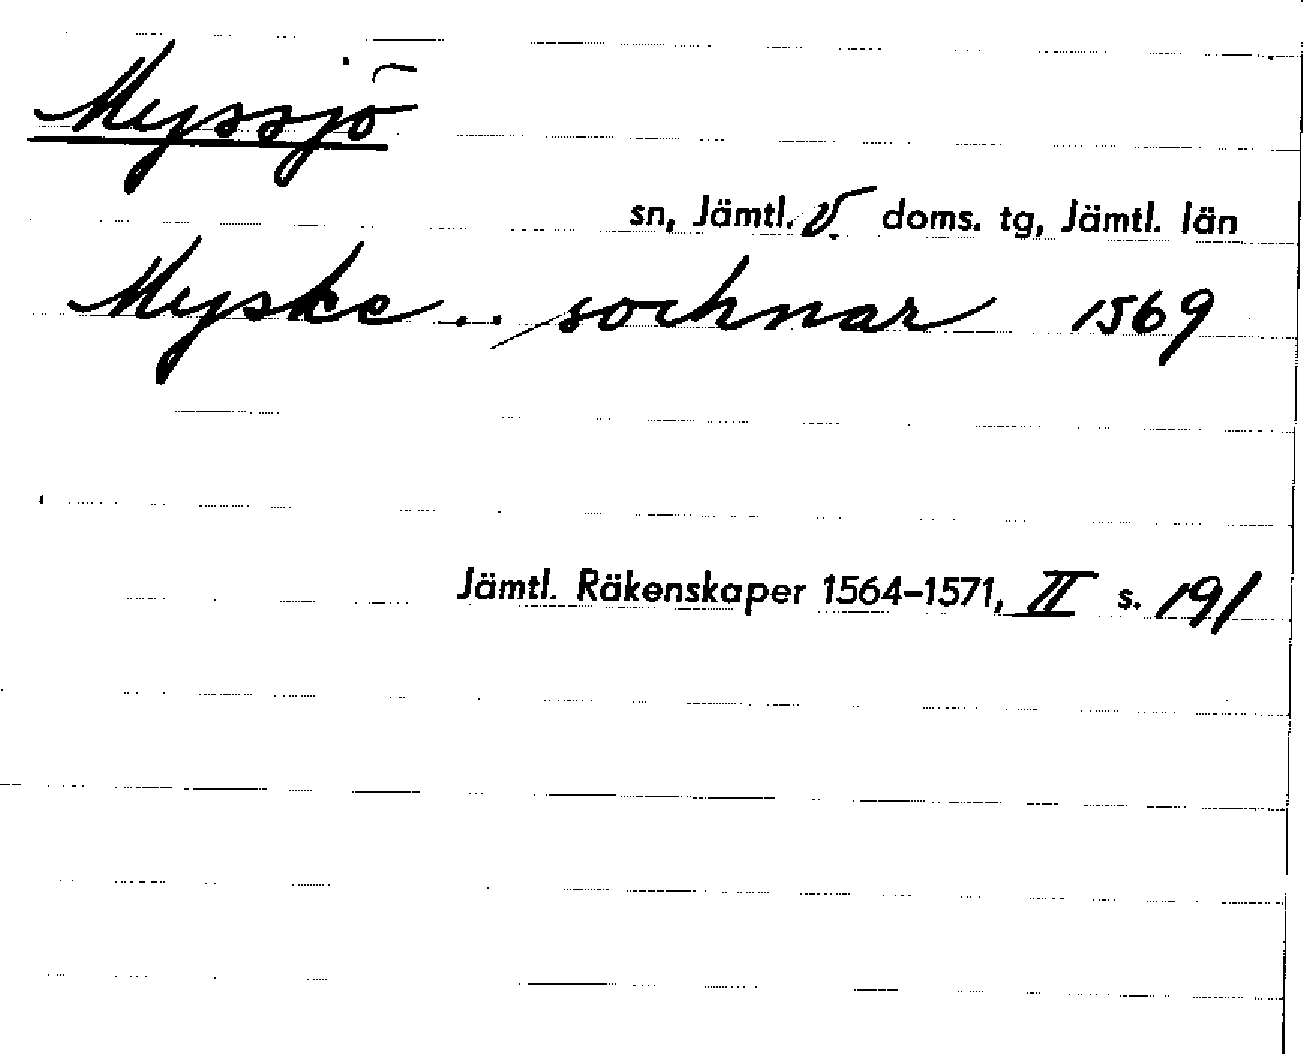 Myssjö
sn, Jämtl. V. doms. tg, Jämtl. län
Myske .. sochnar 1569
Jämtl. Räkenskaper 1564–1571, II s. 191